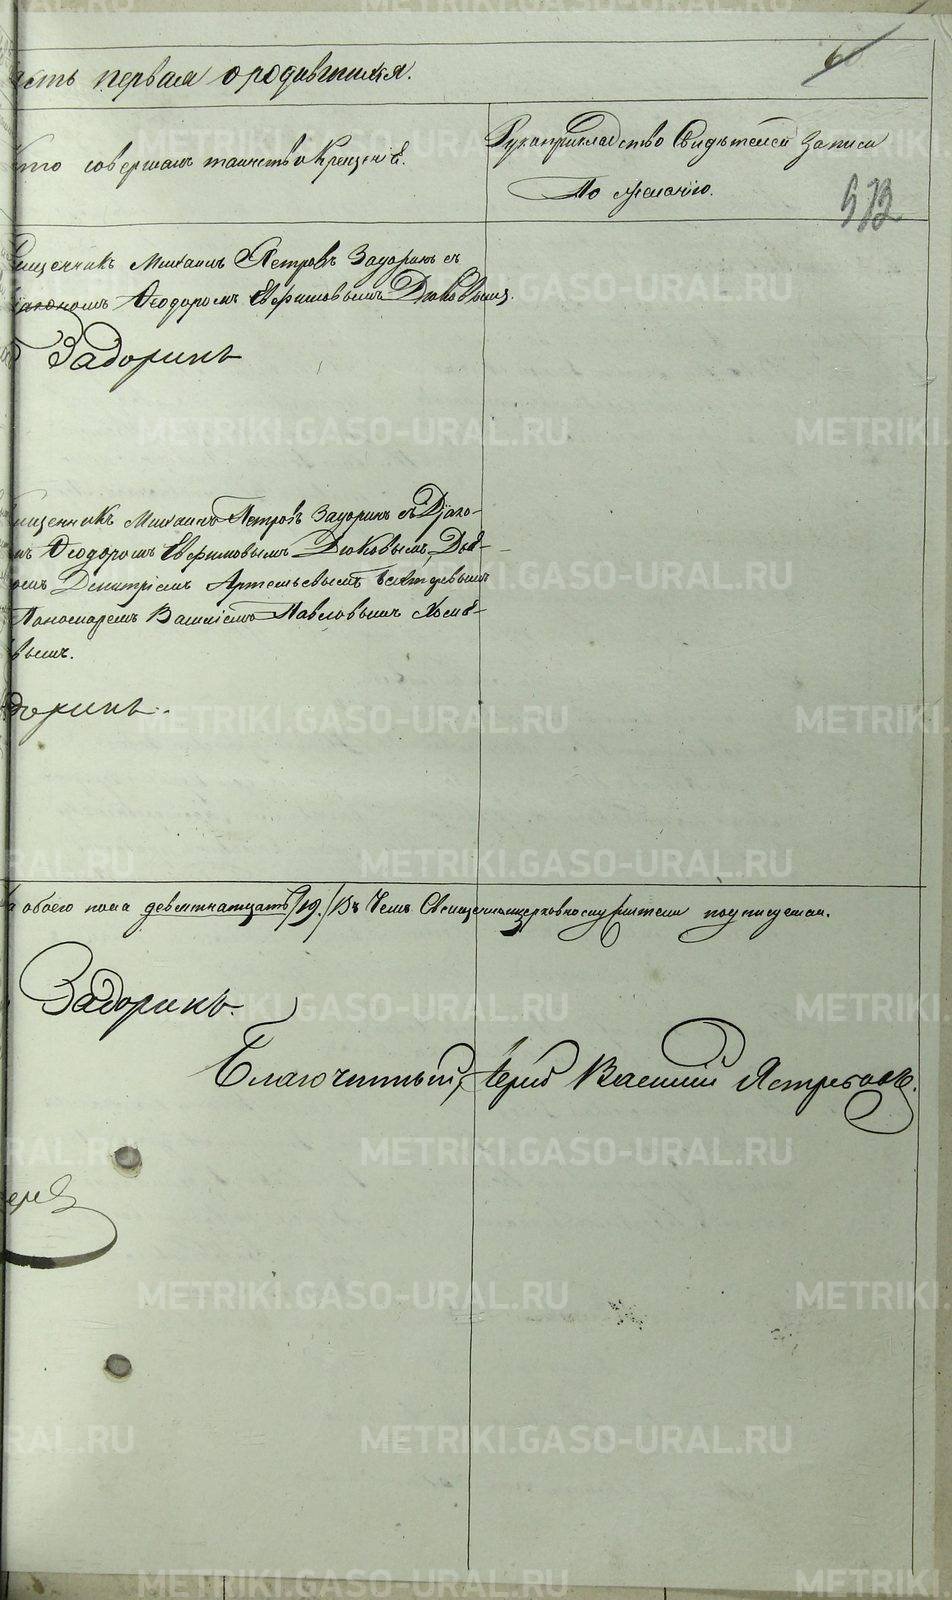 асть первая о родившихся.
60
Кто совершалъ таинство Крещенiѣ.
Рукоприкладство Свидѣтелей Записи
По желанію.
572
священникъ Михаилъ Петровъ Задоринъ съ
Дiакономъ Ѳеодоромъ Евфимовымъ Дюковымъ.
Задоринъ
священникъ Михаилъ Петровъ Задоринъ съ Дiако-
мъ Ѳеодоромъ Евфимовымъ Дюковымъ, Дьяч-
комъ Димитріемъ Артемьевымъ
Пономаремъ Василіемъ Павловымъ Хомя-
вымъ.
доринъ.
а обоего пола девятнатцать /19./ Въ Чемъ Священноцерковнослужители подписуемся.
Задоринъ.
Благочинный, Іерей Василій Ястребовъ.
METRIKI.GASO-URAL.RU